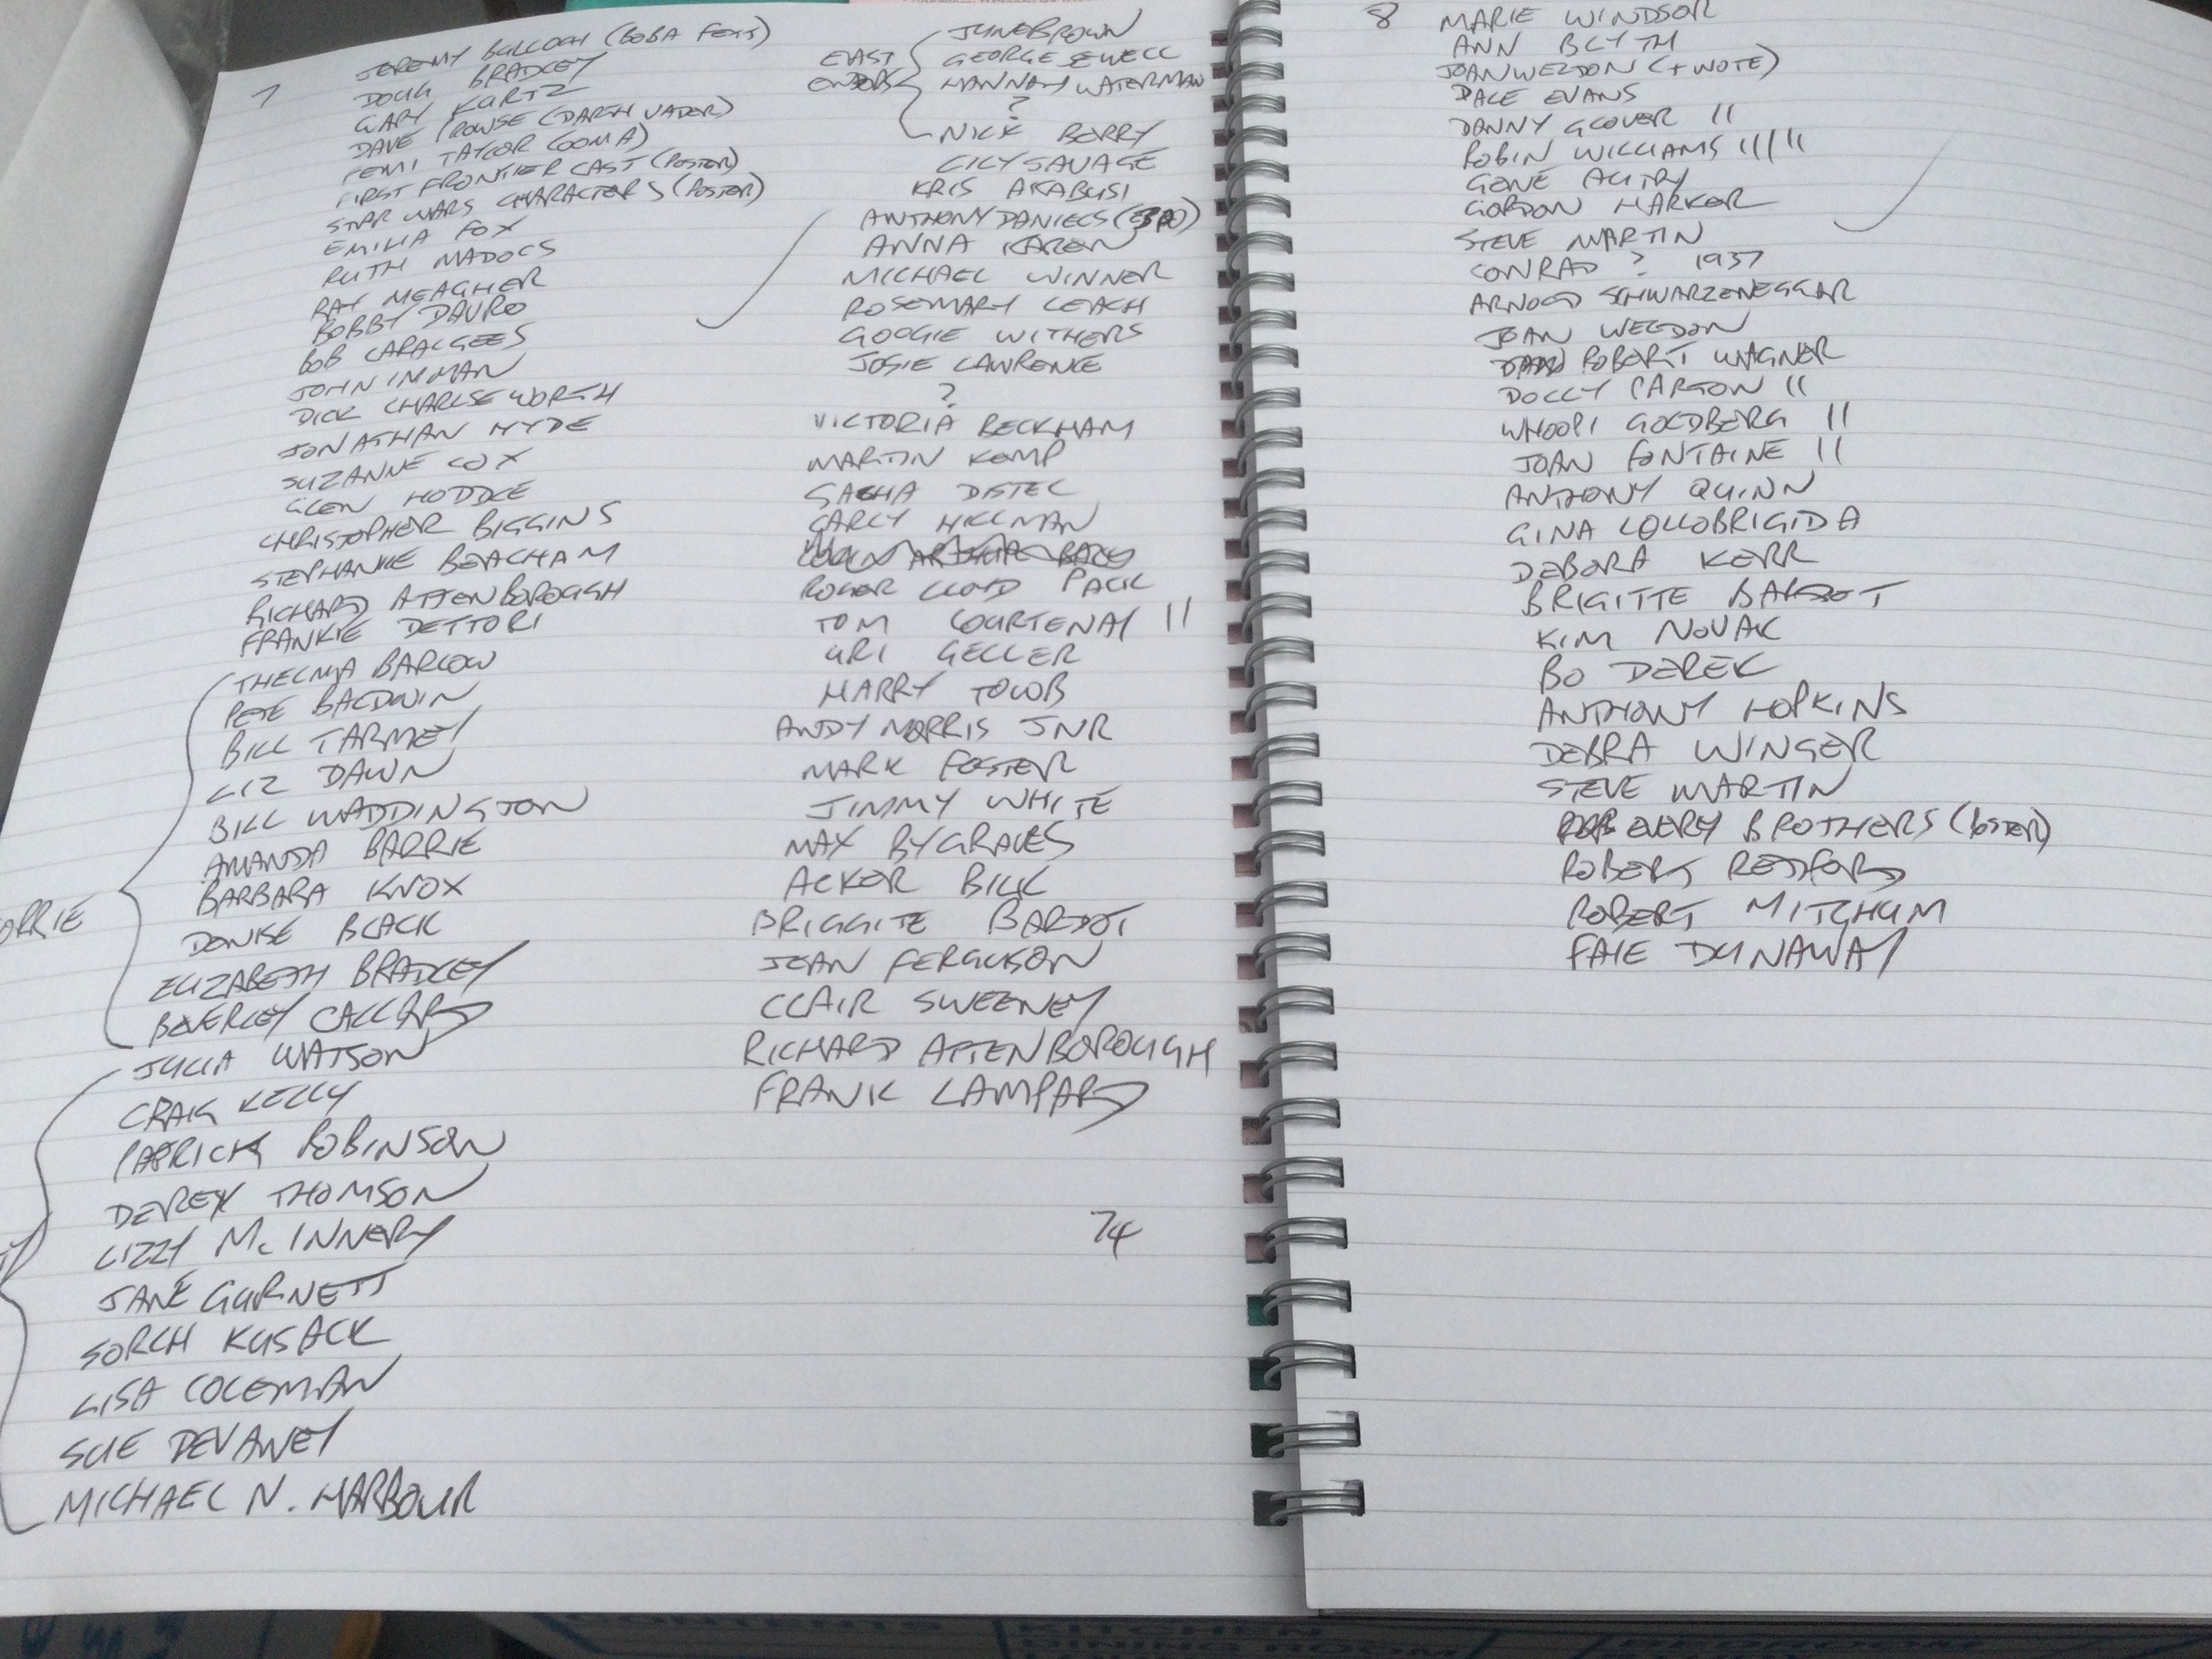 7
JEREMY BULLOCH (BOBA FETT)
DOUG BRADLEY
GARY KURTZ
DAVE PROWSE (DARTH VADOR)
FEMI TAYLOR (OOLA)
FIRST FRONTIER CAST (POSTER)
STAR WARS CHARACTERS (POSTER)
EMILIA FOX
RUTH MADOCS
RAY MEAGHER
BOBBY DAVRO
BOB CARALGEES
JOHN INMAN
DICK CHARLSEWORTH
JONATHAN HYDE
SUZANNE COX
GLEN HODDLE
CHRISTOPHER BIGGINS
STEPHANIE BEACHAM
RICHARD ATTENBOROUGH
FRANKIE DETTORI
ORRIE
THELMA BARLOW
PETE BALDWIN
BILL TARMEY
LIZ DAWN
BILL WADDINGTON
AMANDA BARRIE
BARBARA KNOX
DENISE BLACK
ELIZABETH BRADLEY
BEVERLEY CALLARD
JULIA WATSON
CRAIG KELLY
PATRICK ROBINSON
DEREK THOMSON
LIZZY Mc INNERY
JANE GURNETT
SORCH KUSACK
LISA COLEMAN
SUE DEVANEY
MICHAEL N. HARBOUR
EAST ENDERS
JUNE BROWN
GEORGE SEWELL
HANNAH WATERMAN
?
NICK BERRY
LILY SAVAGE
KRIS AKABUSI
ANTHONY DANIELS (3PO)
ANNA KAREN
MICHAEL WINNER
ROSEMARY LEACH
GOOGIE WITHERS
JOSIE LAWRENCE
?
VICTORIA BECKHAM
MARTIN KEMP
SACHA DISTEL
CARLY HILLMAN
ROGER LLOYD PACK
TOM COURTENAY II
URI GELLER
HARRY TOWB
ANDY MORRIS JNR
MARK FOSTER
JIMMY WHITE
MAX BYGRAVES
ACKER BILK
BRIGGITE BARDOT
JEAN FERGUSON
CLAIR SWEENEY
RICHARD ATTENBOROUGH
FRANK LAMPARD
74
8
MARIE WINDSOR
ANN BLYTH
JOAN WELDON (+ NOTE)
DALE EVANS
DANNY GLOVER II
ROBIN WILLIAMS IIIII
GENE AUTRY
GORDON HARKER
STEVE MARTIN
CONRAD ? 1937
ARNOLD SCHWARZENEGGAR
JOAN WELDON
ROBERT WAGNER
DOLLY PARTON II
WHOOPI GOLDBERG II
JOAN FONTAINE II
ANTHONY QUINN
GINA LOLLOBRIGIDA
DEBORA KERR
BRIGITTE BARDOT
KIM NOVAK
BO DEREK
ANTHONY HOPKINS
DEBRA WINGER
STEVE MARTIN
EVERY BROTHERS (POSTER)
ROBERT REDFORD
ROBERT MITCHUM
FAIE DUNAWAY
CONTENTS
KITCHEN
DINING ROOM
BEDROOM